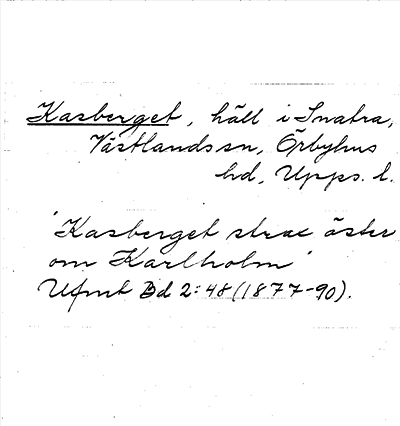 Kasberget, häll i Snatra,
Västlands sn, Örbyhus
hd, Upps. l.
'Kasberget strax öster
om Karlholm'
Ufmt Bd 2:48 (1877-90).